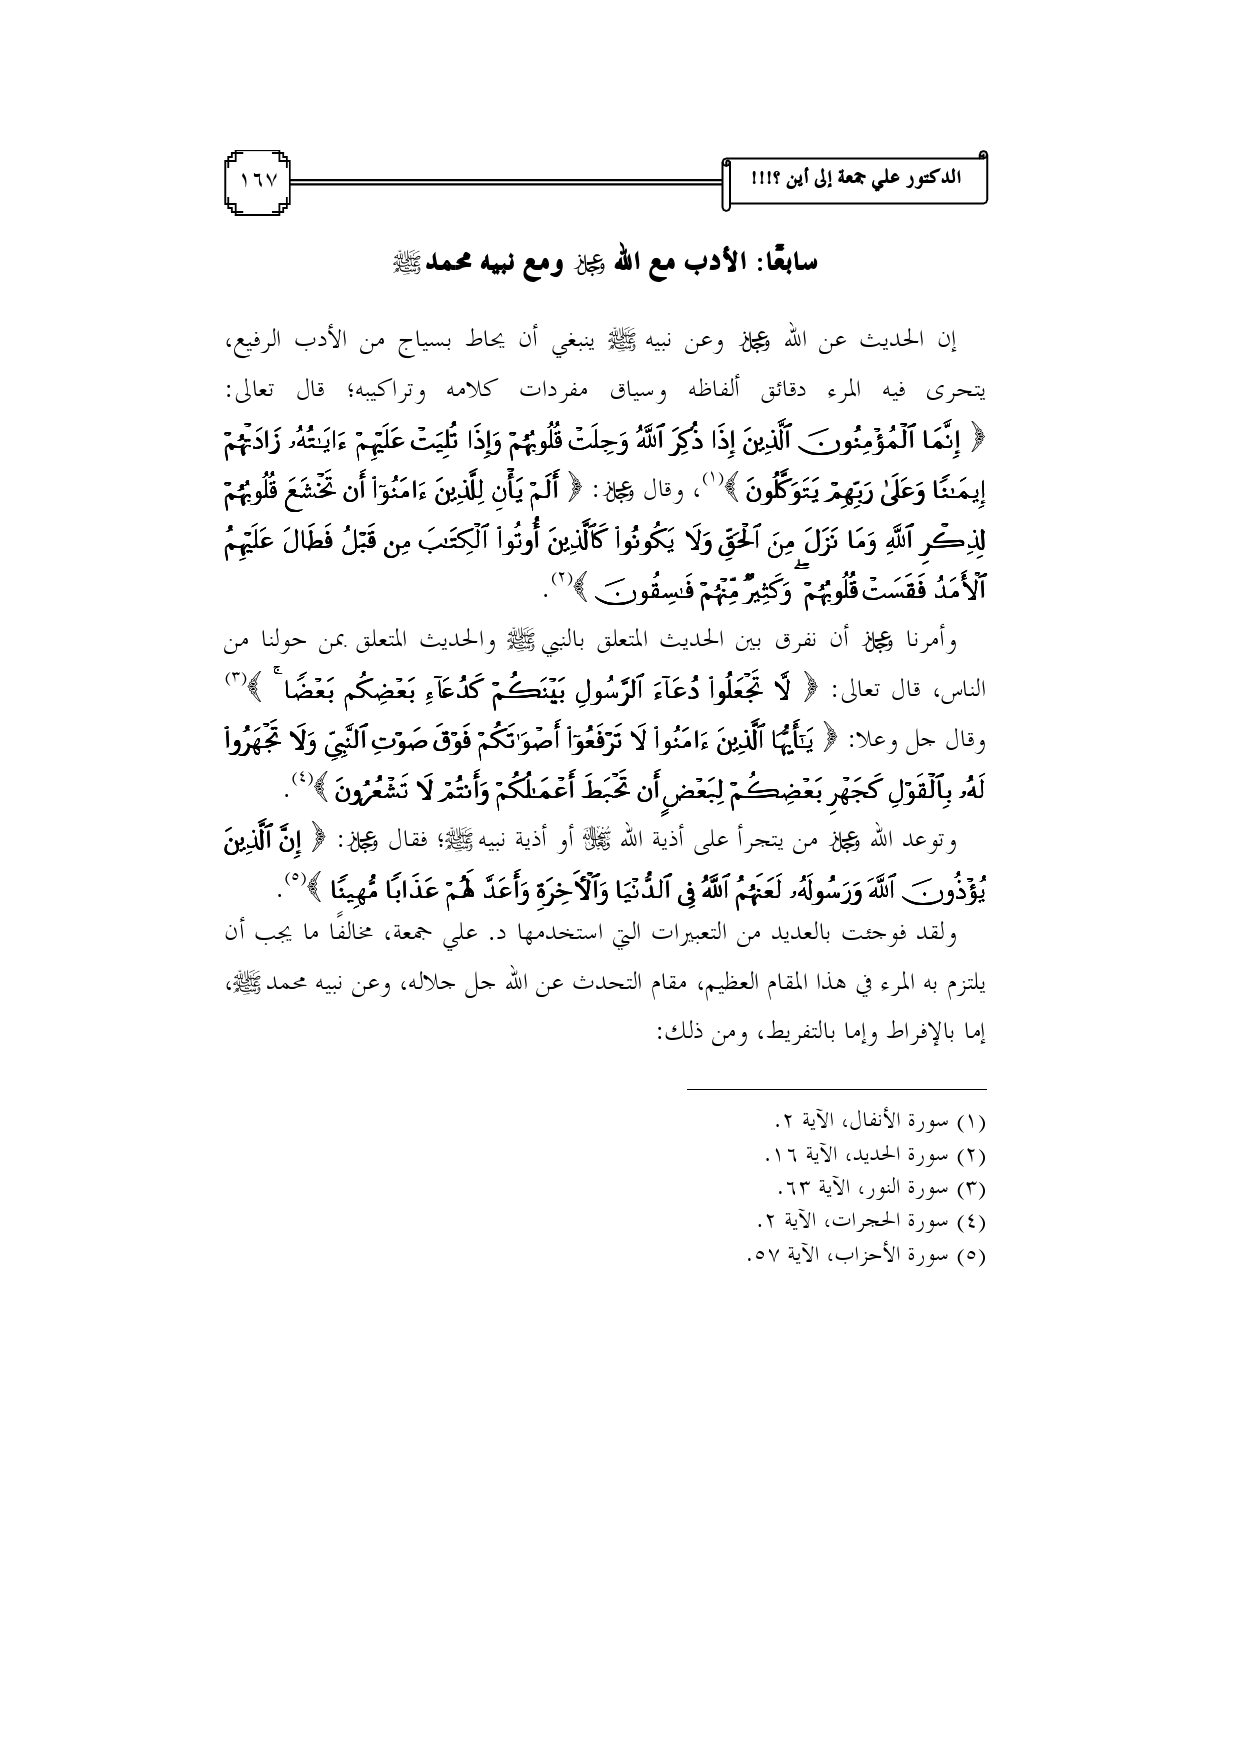 الدكتور علي جمعة إلى أين ؟!!!
١٦٧
سابعًا: الأدب مع الله ﷿ ومع نبيه محمد ﷺ
إن الحديث عن الله ﷿ وعن نبيه ﷺ ينبغي أن يحاط بسياج من الأدب الرفيع،
يتحرى فيه المرء دقائق ألفاظه وسياق مفردات كلامه وتراكيبه؛ قال تعالى:
﴿ إِنَّمَا ٱلْمُؤْمِنُونَ ٱلَّذِينَ إِذَا ذُكِرَ ٱللَّهُ وَجِلَتْ قُلُوبُهُمْ وَإِذَا تُلِيَتْ عَلَيْهِمْ ءَايَـٰتُهُۥ زَادَتْهُمْ
إِيمَـٰنًا وَعَلَىٰ رَبِّهِمْ يَتَوَكَّلُونَ ﴾(١)، وقال ﷿: ﴿ أَلَمْ يَأْنِ لِلَّذِينَ ءَامَنُوٓا۟ أَن تَخْشَعَ قُلُوبُهُمْ
لِذِكْرِ ٱللَّهِ وَمَا نَزَلَ مِنَ ٱلْحَقِّ وَلَا يَكُونُوا۟ كَٱلَّذِينَ أُوتُوا۟ ٱلْكِتَـٰبَ مِن قَبْلُ فَطَالَ عَلَيْهِمُ
ٱلْأَمَدُ فَقَسَتْ قُلُوبُهُمْ ۖ وَكَثِيرٌ مِّنْهُمْ فَـٰسِقُونَ ﴾(٢).
وأمرنا ﷿ أن نفرق بين الحديث المتعلق بالنبي ﷺ والحديث المتعلق بمن حولنا من
الناس، قال تعالى: ﴿ لَّا تَجْعَلُوا۟ دُعَآءَ ٱلرَّسُولِ بَيْنَكُمْ كَدُعَآءِ بَعْضِكُم بَعْضًا ۚ ﴾(٣)
وقال جل وعلا: ﴿ يَـٰٓأَيُّهَا ٱلَّذِينَ ءَامَنُوا۟ لَا تَرْفَعُوٓا۟ أَصْوَٰتَكُمْ فَوْقَ صَوْتِ ٱلنَّبِىِّ وَلَا تَجْهَرُوا۟
لَهُۥ بِٱلْقَوْلِ كَجَهْرِ بَعْضِكُمْ لِبَعْضٍ أَن تَحْبَطَ أَعْمَـٰلُكُمْ وَأَنتُمْ لَا تَشْعُرُونَ ﴾(٤).
وتوعد الله ﷿ من يتجرأ على أذية الله أو أذية نبيه ﷺ؛ فقال ﷿: ﴿ إِنَّ ٱلَّذِينَ
يُؤْذُونَ ٱللَّهَ وَرَسُولَهُۥ لَعَنَهُمُ ٱللَّهُ فِى ٱلدُّنْيَا وَٱلْـَٔاخِرَةِ وَأَعَدَّ لَهُمْ عَذَابًا مُّهِينًا ﴾(٥).
ولقد فوجئت بالعديد من التعبيرات التي استخدمها د. علي جمعة، مخالفًا ما يجب أن
يلتزم به المرء في هذا المقام العظيم، مقام التحدث عن الله جل جلاله، وعن نبيه محمد ﷺ،
إما بالإفراط وإما بالتفريط، ومن ذلك:
(١) سورة الأنفال، الآية ٢.
(٢) سورة الحديد، الآية ١٦.
(٣) سورة النور، الآية ٦٣.
(٤) سورة الحجرات، الآية ٢.
(٥) سورة الأحزاب، الآية ٥٧.